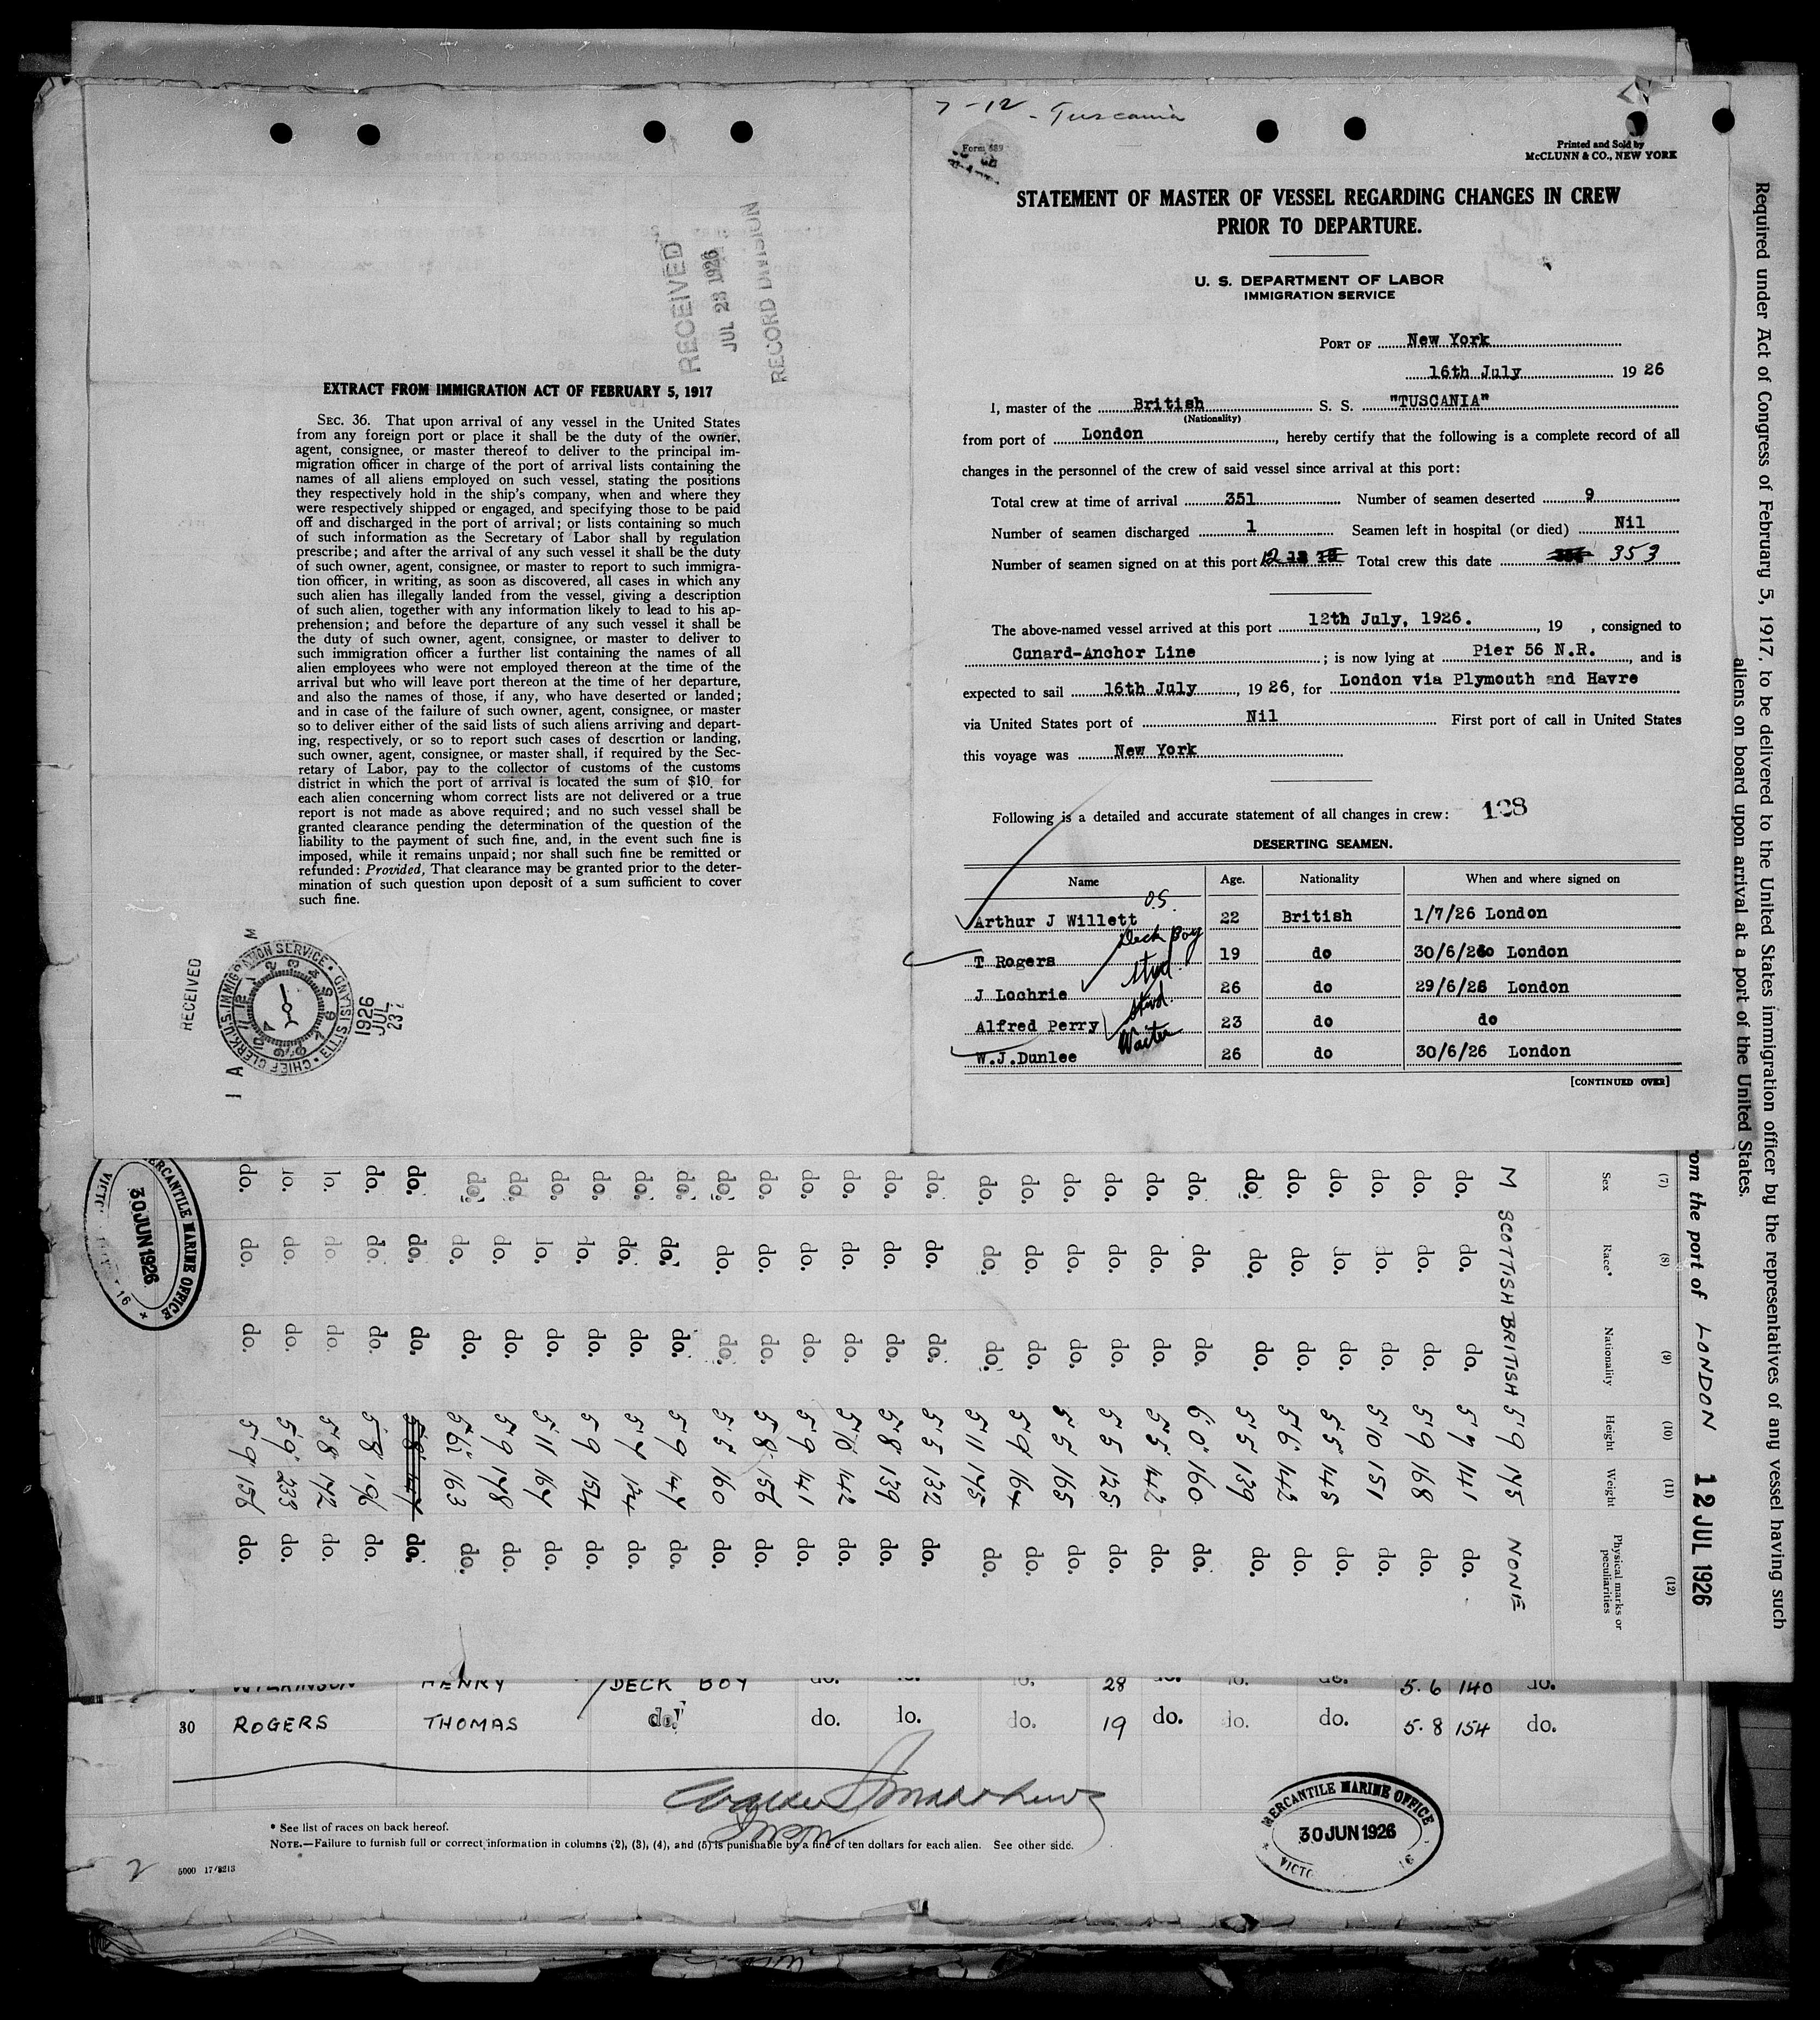 7-12 - Tuscania
Form 689
Printed and Sold by
McCLUNN & CO., NEW YORK
STATEMENT OF MASTER OF VESSEL REGARDING CHANGES IN CREW
PRIOR TO DEPARTURE.
U. S. DEPARTMENT OF LABOR
IMMIGRATION SERVICE
PORT OF New York
16th July 19 26
I, master of the British S. S. "TUSCANIA"
(Nationality)
from port of London, hereby certify that the following is a complete record of all
changes in the personnel of the crew of said vessel since arrival at this port:
Total crew at time of arrival 351 Number of seamen deserted 9
Number of seamen discharged 1 Seamen left in hospital (or died) Nil
Number of seamen signed on at this port 12 Total crew this date 353
The above-named vessel arrived at this port 12th July, 1926. , 19 , consigned to
Cunard-Anchor Line ; is now lying at Pier 56 N.R. , and is
expected to sail 16th July , 19 26, for London via Plymouth and Havre
via United States port of Nil First port of call in United States
this voyage was New York
Following is a detailed and accurate statement of all changes in crew: 128
DESERTING SEAMEN.
Name Age. Nationality When and where signed on
Arthur J Willett O.S. 22 British 1/7/26 London
T Rogers Deck Boy 19 do 30/6/26 London
J Lochrie Stwd. 26 do 29/6/26 London
Alfred Perry Stwd. 23 do do
W.J.Dunlee Waiter 26 do 30/6/26 London
[CONTINUED OVER]
RECEIVED
JUL 23 1926
RECORD DIVISION
EXTRACT FROM IMMIGRATION ACT OF FEBRUARY 5, 1917
SEC. 36. That upon arrival of any vessel in the United States
from any foreign port or place it shall be the duty of the owner,
agent, consignee, or master thereof to deliver to the principal im-
migration officer in charge of the port of arrival lists containing the
names of all aliens employed on such vessel, stating the positions
they respectively hold in the ship's company, when and where they
were respectively shipped or engaged, and specifying those to be paid
off and discharged in the port of arrival; or lists containing so much
of such information as the Secretary of Labor shall by regulation
prescribe; and after the arrival of any such vessel it shall be the duty
of such owner, agent, consignee, or master to report to such immigra-
tion officer, in writing, as soon as discovered, all cases in which any
such alien has illegally landed from the vessel, giving a description
of such alien, together with any information likely to lead to his ap-
prehension; and before the departure of any such vessel it shall be
the duty of such owner, agent, consignee, or master to deliver to
such immigration officer a further list containing the names of all
alien employees who were not employed thereon at the time of the
arrival but who will leave port thereon at the time of her departure,
and also the names of those, if any, who have deserted or landed;
and in case of the failure of such owner, agent, consignee, or master
so to deliver either of the said lists of such aliens arriving and depart-
ing, respectively, or so to report such cases of desertion or landing,
such owner, agent, consignee, or master shall, if required by the Sec-
retary of Labor, pay to the collector of customs of the customs
district in which the port of arrival is located the sum of $10 for
each alien concerning whom correct lists are not delivered or a true
report is not made as above required; and no such vessel shall be
granted clearance pending the determination of the question of the
liability to the payment of such fine, and, in the event such fine is
imposed, while it remains unpaid; nor shall such fine be remitted or
refunded: Provided, That clearance may be granted prior to the deter-
mination of such question upon deposit of a sum sufficient to cover
such fine.
RECEIVED
CHIEF CLERK, U.S. IMMIGRATION SERVICE ELLIS ISLAND
1926 JUL 23
Required under Act of Congress of February 5, 1917, to be delivered to the United States immigration officer by the representatives of any vessel having such
aliens on board upon arrival at a port of the United States.
om the port of LONDON 12 JUL 1926
(7) (8) (9) (10) (11) (12)
Sex Race* Nationality Height Weight Physical marks or peculiarities
M SCOTTISH BRITISH 5 9 145 NONE
do. do. do. 5 7 141 do.
do. do. do. 5 9 168 do.
do. do. do. 5 10 151 do.
do. do. do. 5 5 145 do.
do. do. do. 5 6 142 do.
do. do. do. 5 5 139 do.
do. do. do. 6 0 160 do.
do. do. do. 5 5 142 do.
do. do. do. 5 5 125 do.
do. do. do. 5 5 165 do.
do. do. do. 5 9 164 do.
do. do. do. 5 11 145 do.
do. do. do. 5 5 132 do.
do. do. do. 5 8 139 do.
do. do. do. 5 10 142 do.
do. do. do. 5 9 141 do.
do. do. do. 5 8 156 do.
do. do. do. 5 5 160 do.
do. do. do. 5 9 147 do.
do. do. do. 5 7 124 do.
do. do. do. 5 9 154 do.
do. do. do. 5 11 164 do.
do. do. do. 5 9 148 do.
do. do. do. 5 6½ 163 do.
do. do. do. do.
do. do. do. 5 8 196 do.
do. do. do. 5 8 172 do.
do. do. do. 5 9 233 do.
do. do. do. 5 9 156 do.
MERCANTILE MARINE OFFICE
30 JUN 1926
WILKINSON HENRY DECK BOY do. do. do. 28 do. do. do. 5.6 140 do.
30 ROGERS THOMAS do. do. do. do. 19 do. do. do. 5.8 154 do.
* See list of races on back hereof.
NOTE.—Failure to furnish full or correct information in columns (2), (3), (4), and (5) is punishable by a fine of ten dollars for each alien. See other side.
MERCANTILE MARINE OFFICE
30 JUN 1926
2
5000 17/8213